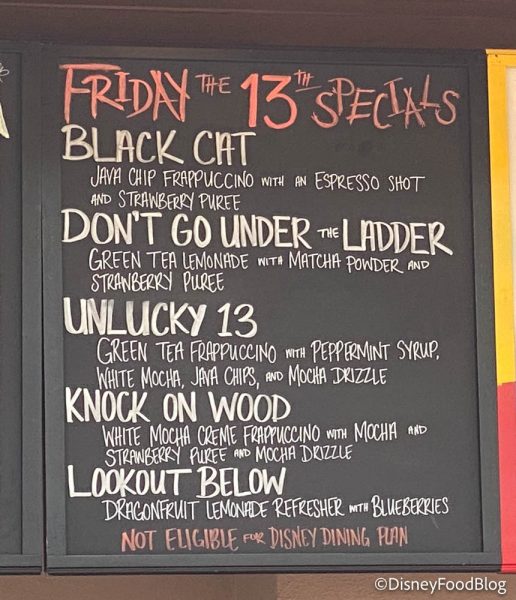 FRIDAY THE 13TH SPECIALS
BLACK CAT
JAVA CHIP FRAPPUCCINO WITH AN ESPRESSO SHOT
AND STRAWBERRY PUREE
DON'T GO UNDER THE LADDER
GREEN TEA LEMONADE WITH MATCHA POWDER AND
STRANBERRY PUREE
UNLUCKY 13
GREEN TEA FRAPPUCCINO WITH PEPPERMINT SYRUP,
WHITE MOCHA, JAVA CHIPS, AND MOCHA DRIZZLE
KNOCK ON WOOD
WHITE MOCHA CREME FRAPPUCCINO WITH MOCHA AND
STRAWBERRY PUREE AND MOCHA DRIZZLE
LOOKOUT BELOW
DRAGONFRUIT LEMONADE REFRESHER WITH BLUEBERRIES
NOT ELIGIBLE FOR DISNEY DINING PLAN
©DisneyFoodBlog